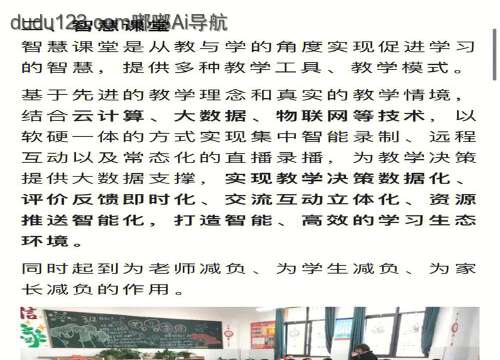 dudu123.com嘟嘟Ai导航
二、智慧课堂
智慧课堂是从教与学的角度实现促进学习
的智慧，提供多种教学工具、教学模式。
基于先进的教学理念和真实的教学情境，
结合云计算、大数据、物联网等技术，以
软硬一体的方式实现集中智能录制、远程
互动以及常态化的直播录播，为教学决策
提供大数据支撑，实现教学决策数据化、
评价反馈即时化、交流互动立体化、资源
推送智能化，打造智能、高效的学习生态
环境。
同时起到为老师减负、为学生减负、为家
长减负的作用。